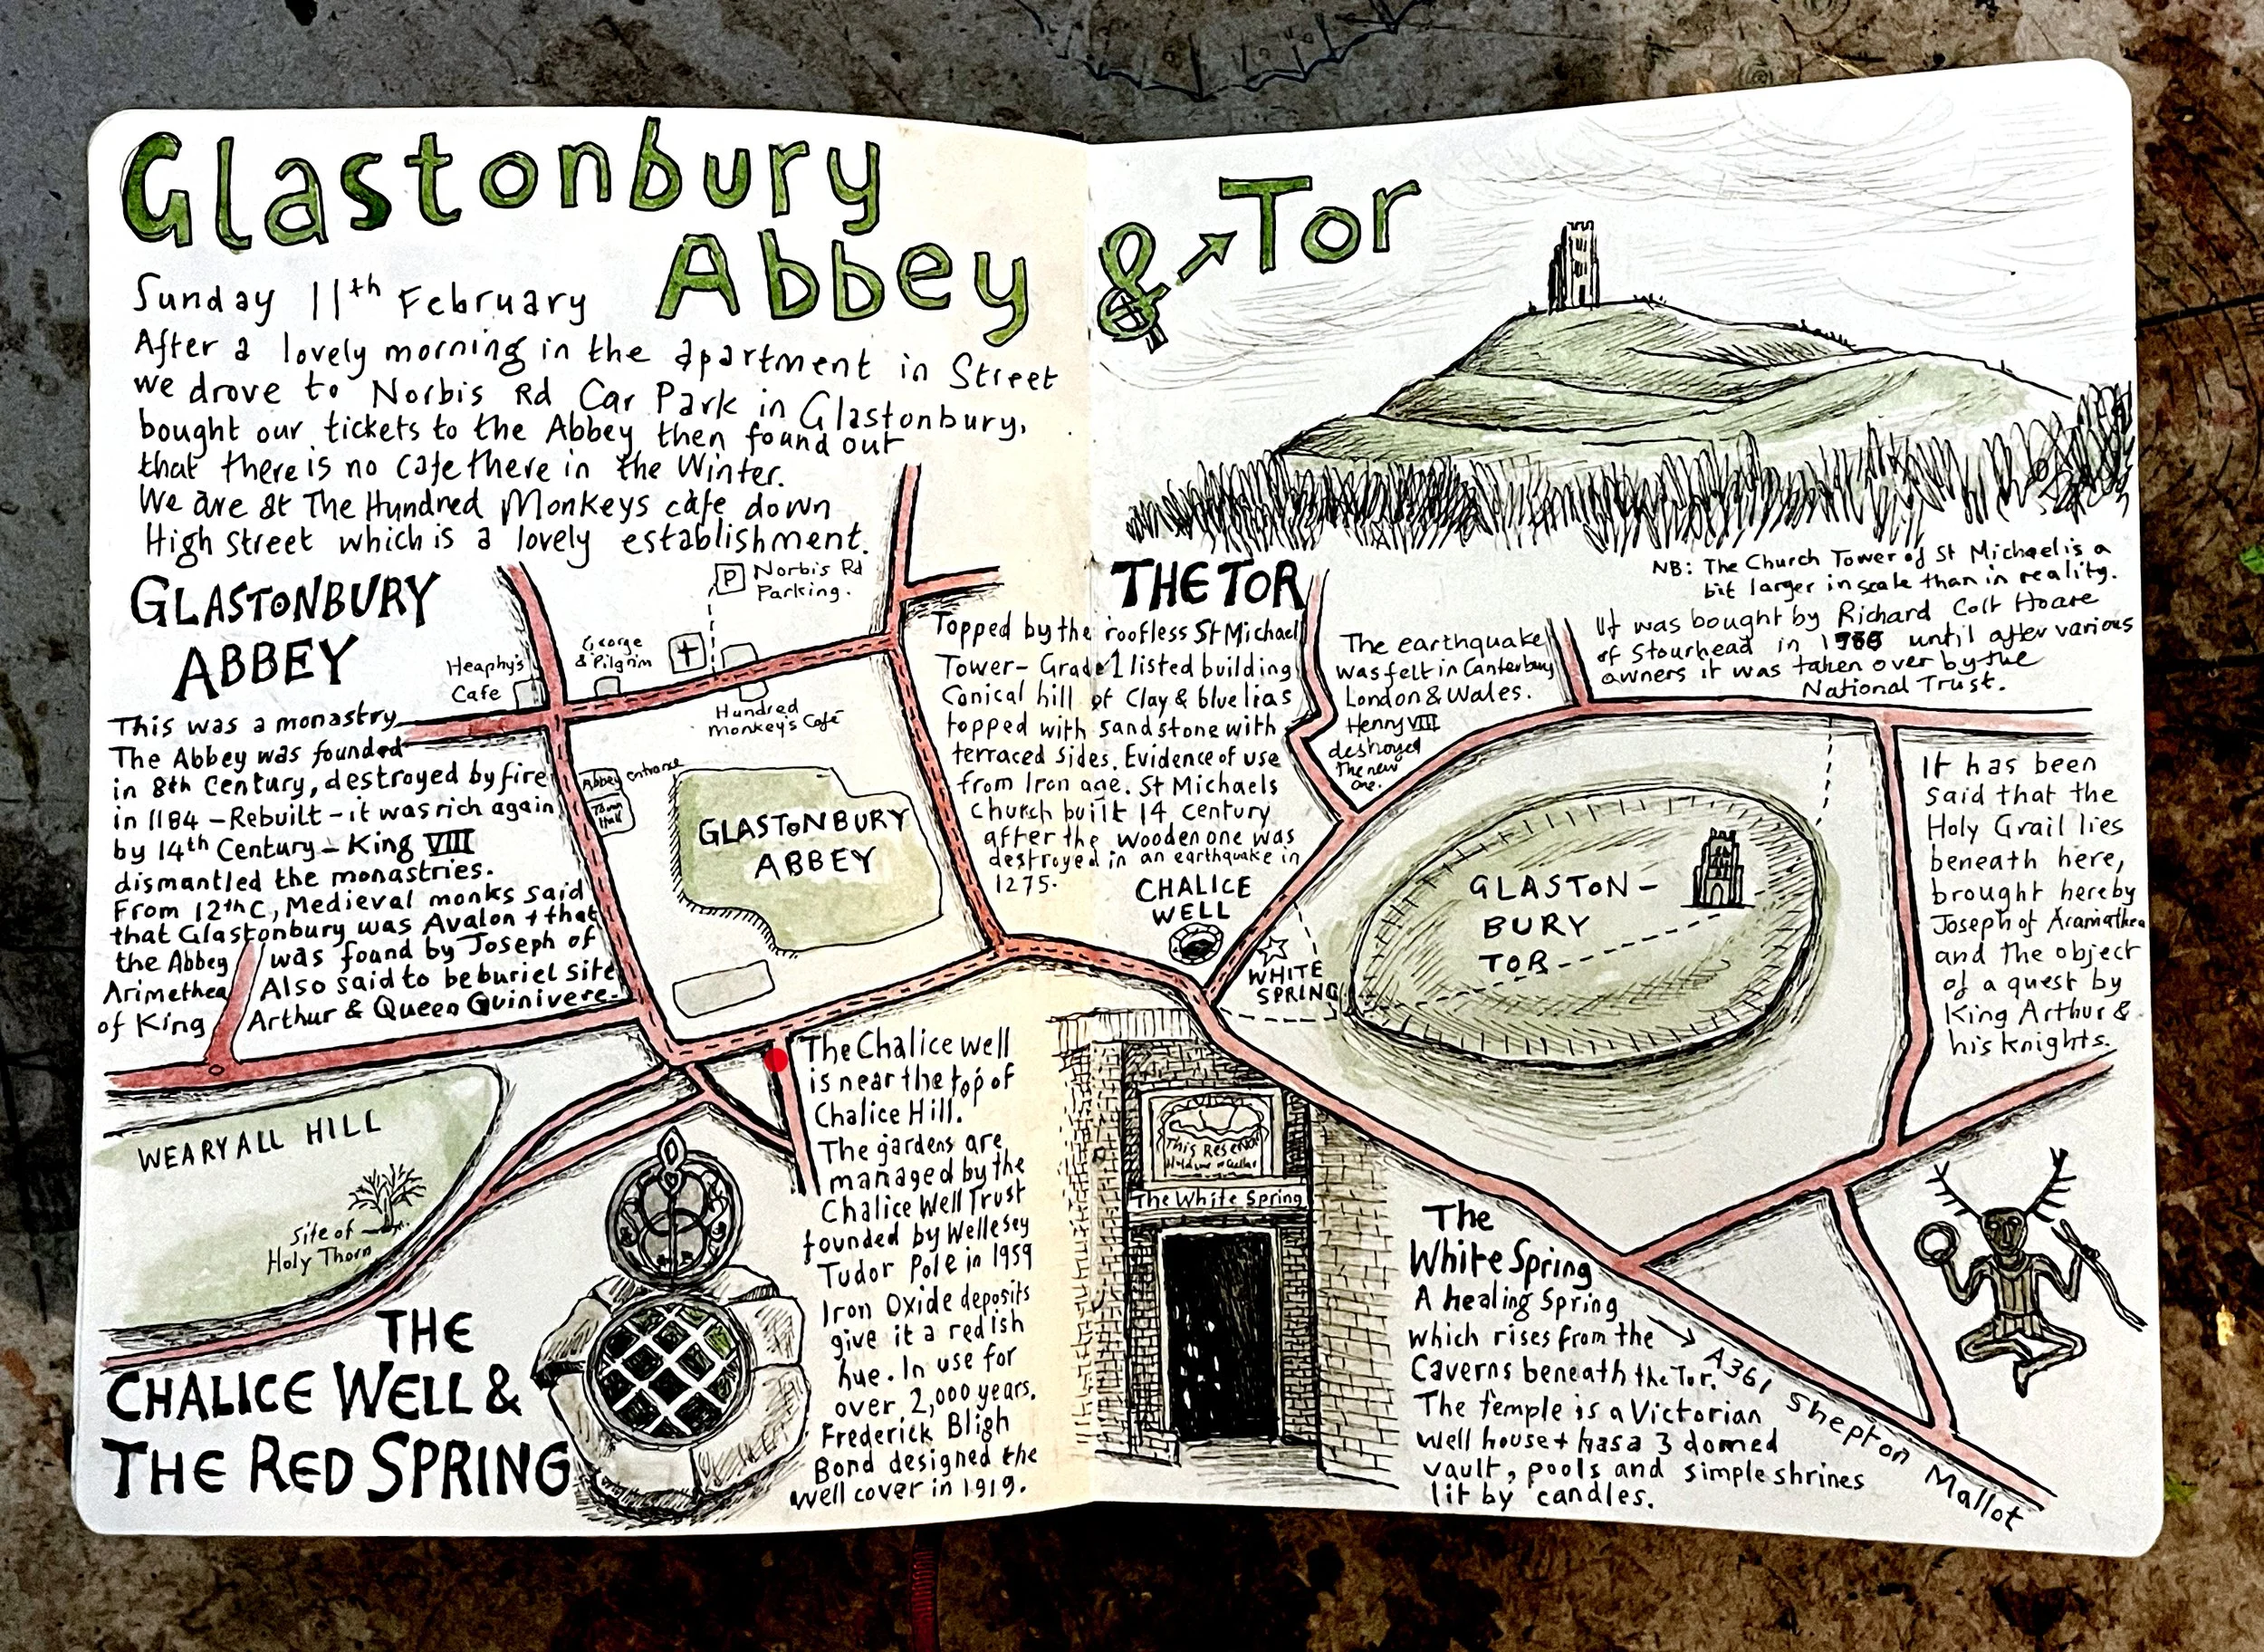 Glastonbury
Abbey & Tor
Sunday 11th February
After a lovely morning in the apartment in Street
we drove to Norbis Rd Car Park in Glastonbury,
bought our tickets to the Abbey then found out
that there is no cafe there in the Winter.
We are at The Hundred Monkeys cafe down
High Street which is a lovely establishment.
GLASTONBURY
ABBEY
This was a monastry
The Abbey was founded
in 8th Century, destroyed by fire
in 1184 - Rebuilt - it was rich again
by 14th Century - King VIII
dismantled the monastries.
From 12thC, Medieval monks said
that Glastonbury was Avalon + that
the Abbey was found by Joseph of
Arimethea Also said to be buriel site
of King Arthur & Queen Guinivere.
P Norbis Rd
Parking.
George
& Pilgrim
Heaphy's
Cafe
Hundred
Monkey's Café
Abbey entrance
Town
Hall
GLASTONBURY
ABBEY
WEARYALL HILL
Site of
Holy Thorn
THE
CHALICE WELL &
THE RED SPRING
The Chalice well
is near the top of
Chalice Hill.
The gardens are
managed by the
Chalice Well Trust
founded by Wellesey
Tudor Pole in 1959
Iron Oxide deposits
give it a redish
hue. In use for
over 2,000 years.
Frederick Bligh
Bond designed the
well cover in 1919.
THE TOR
Topped by the roofless St Michael
Tower - Grade 1 listed building
Conical hill of Clay & blue lias
topped with sandstone with
terraced sides. Evidence of use
from Iron age. St Michaels
Church built 14 century
after the wooden one was
destroyed in an earthquake in
1275.
The earthquake
was felt in Canterbury
London & Wales.
Henry VIII
destroyed
the new
one.
NB: The Church Tower of St Michael is a
bit larger in scale than in reality.
It was bought by Richard Colt Hoare
of Stourhead in until after various
owners it was taken over by the
National Trust.
CHALICE
WELL
WHITE
SPRING
GLASTON-
BURY
TOR
It has been
said that the
Holy Grail lies
beneath here,
brought here by
Joseph of Aramathea
and the object
of a quest by
King Arthur &
his knights.
This Reservoir
The White Spring
The
White Spring
A healing Spring
which rises from the
Caverns beneath the Tor.
The temple is a Victorian
well house + has a 3 domed
vault, pools and simple shrines
lit by candles.
A361 Shepton Mallot